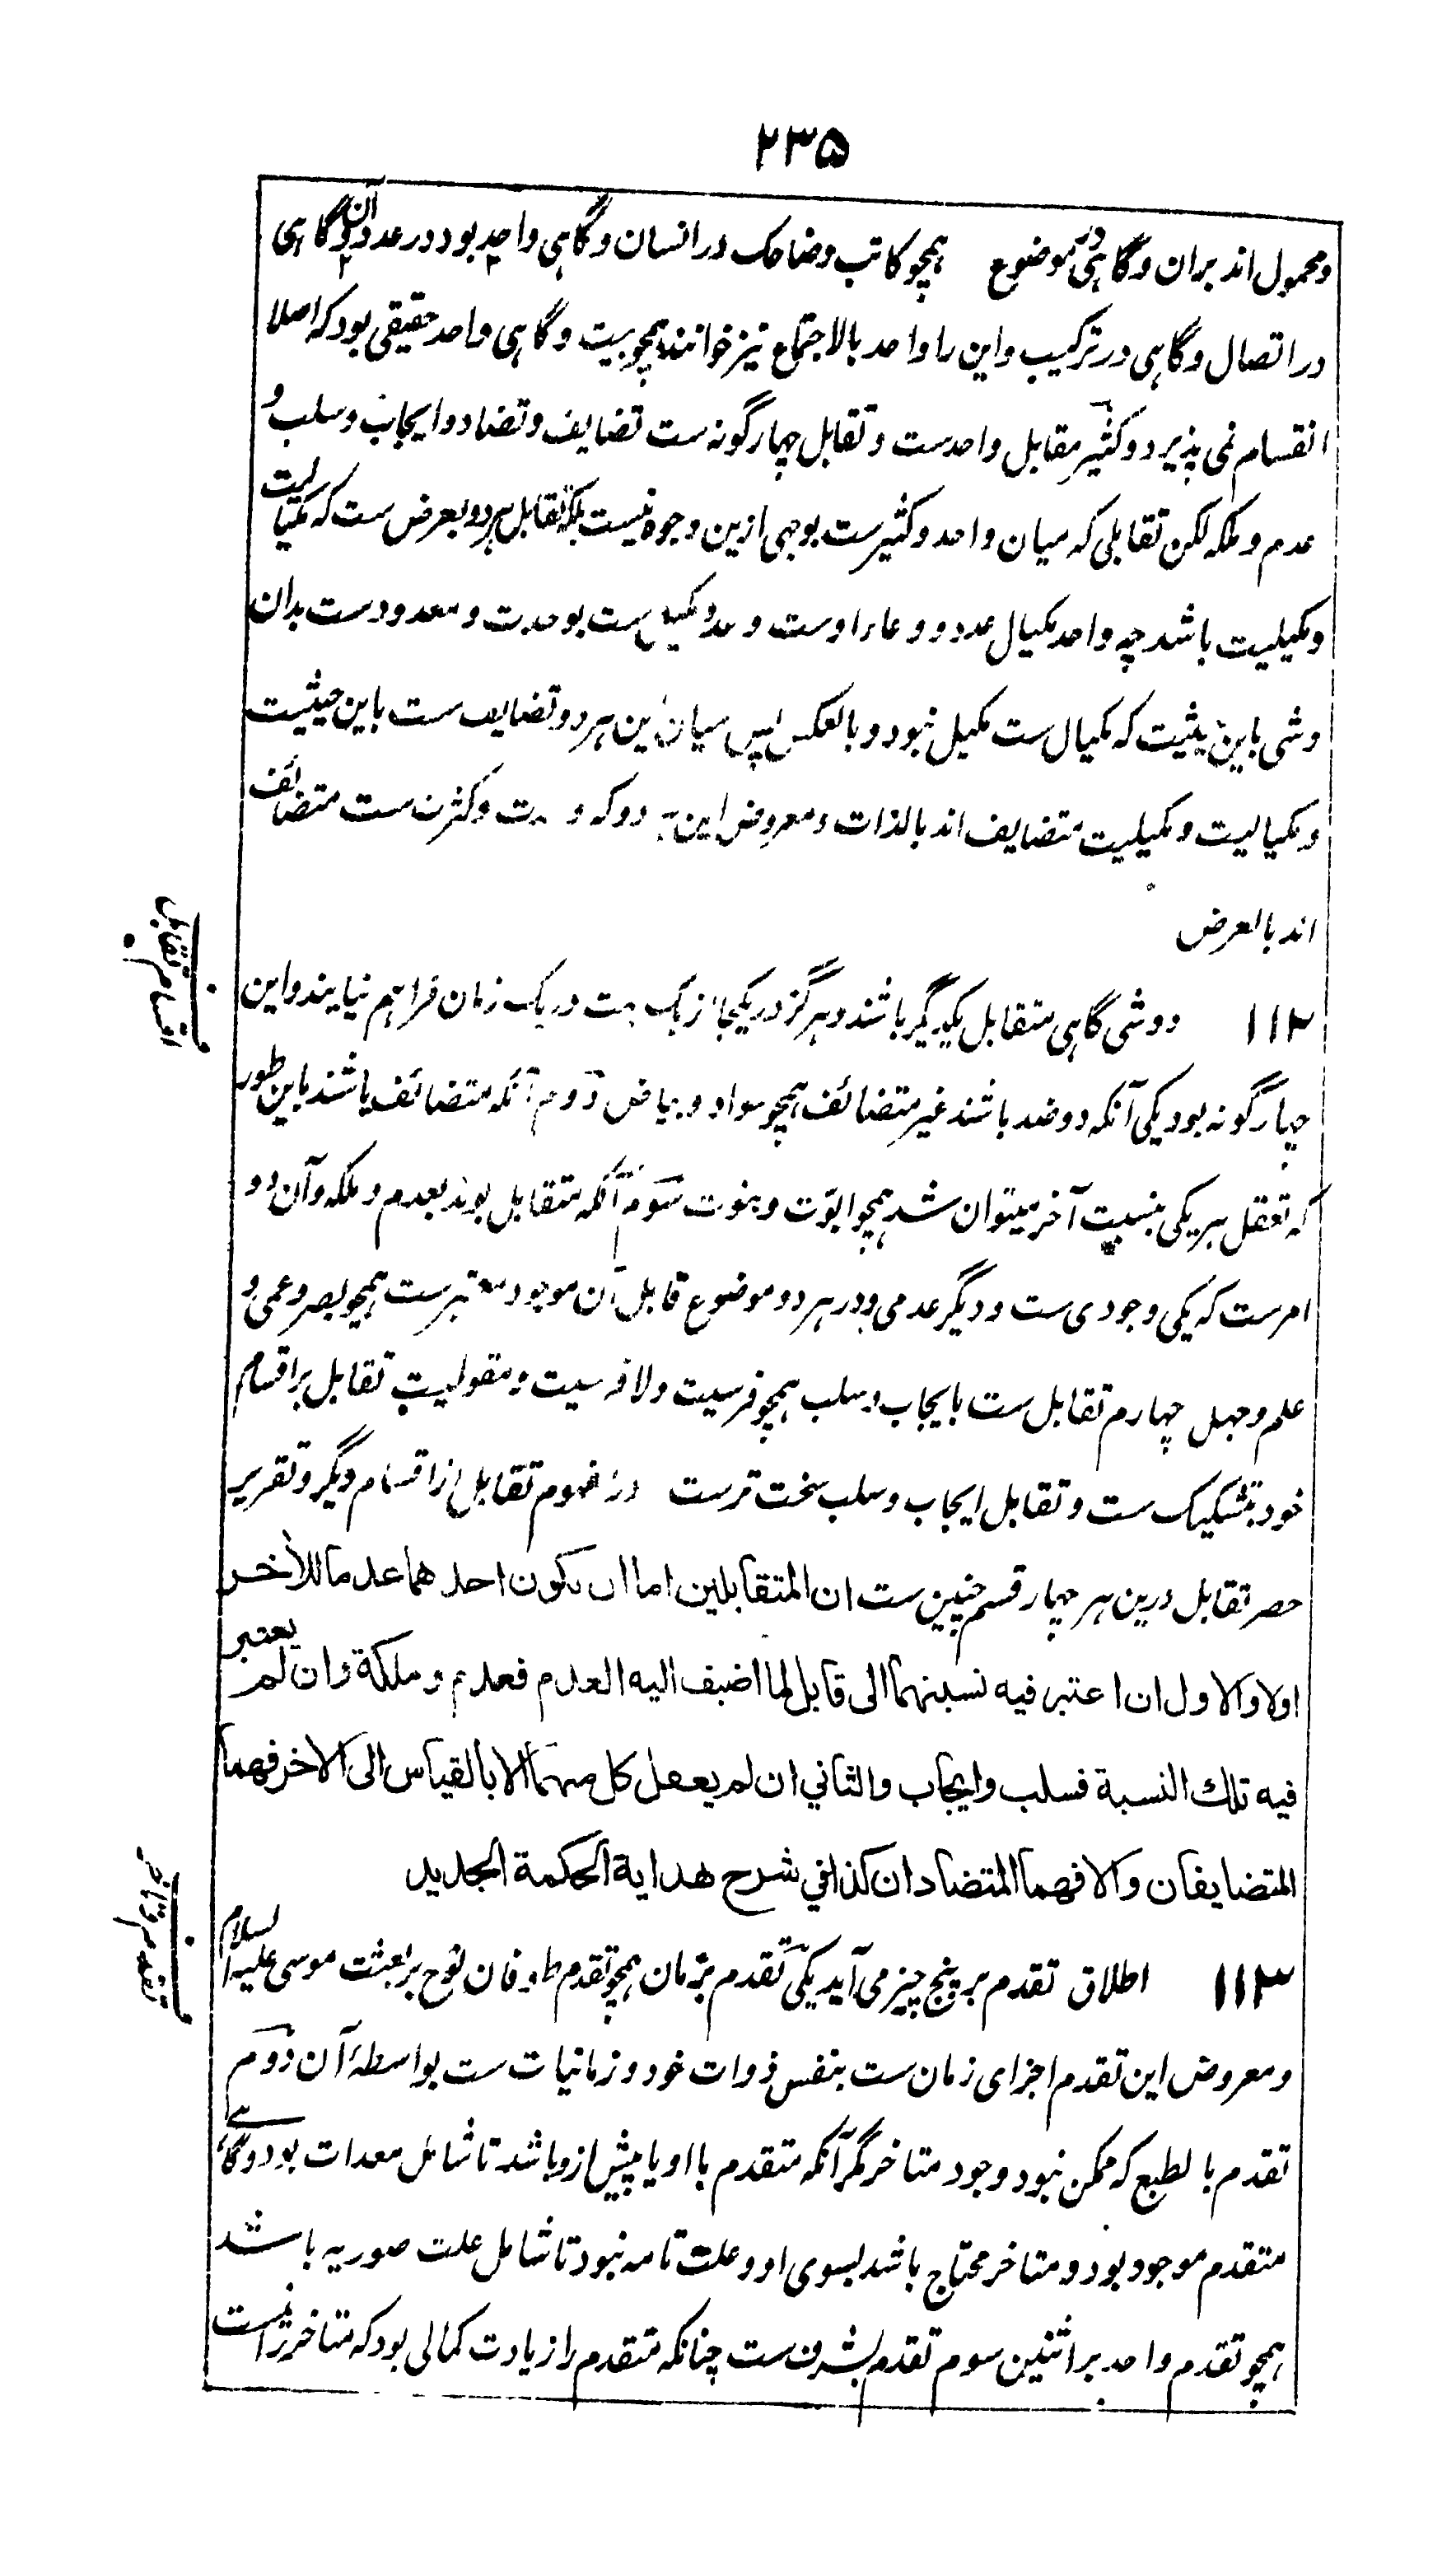 ۲۳۵
ومحمول اند بران وگاهی در موضوع همچو کاتب وضاحک در انسان وگاهی واحد بود در عدد وگاهی
در اتصال وگاهی در ترکیب واین را واحد بالاجتماع نیز خوانند همچو بیت وگاهی واحد حقیقی بود که اصلا
انقسام نمی پذیرد وکثیر مقابل واحدست وتقابل چهار گونه ست تضایف وتضاد وایجاب وسلب و
عدم وملکه لکن تقابلی که میان واحد وکثیرست بوجهی ازین وجوه نیست بلکه تقابل هر دو بعرض ست که مکیالیت
ومکیلیت باشد چه واحد مکیال عدد و عاد اوست و عدد مکیل ست بوحدت و معدودست بدان
وشی باین حیثیت که مکیال ست مکیل نبود وبالعکس پس میان این هر دو تضایف ست باین حیثیت
ومکیالیت ومکیلیت متضایف اند بالذات ومعروض این دو که وحدت وکثرت ست متضائف
اند بالعرض
اقسام تقابل
۱۱۲ دو شی گاهی متقابل یکدیگر باشند وهرگز در یکجا از یک جهت در یک زمان فراهم نیایند واین
چهار گونه بود یکی آنکه دو ضد باشند غیر متضائف همچو سواد و بیاض دوم آنکه متضائف باشند باین طور
که تعقل هر یکی بنسبت آخر میتوان شد همچو ابوت و بنوت سوم آنکه متقابل بوند بعدم و ملکه وآن دو
امرست که یکی وجودی ست و دیگر عدمی ودر هر دو موضوع قابل آن موجود معتبرست همچو بصر وعمی و
علم وجهل چهارم تقابل ست بایجاب وسلب همچو فرسیت ولا فرسیت ومقولیت تقابل بر اقسام
خود بتشکیک ست وتقابل ایجاب وسلب سخت ترست در مفهوم تقابل از اقسام دیگر وتقریر
حصر تقابل درین هر چهار قسم چنین ست ان المتقابلین اما ان یکون احدهما عدما للآخر
اولا والاول ان اعتبر فیه نسبتهما الی قابل لما اضیف الیه العدم فعدم وملکة وان لم یعتبر
فیه تلك النسبة فسلب وایجاب والثانی ان لم یعقل کل منهما الا بالقیاس الی الاخر فهما
المتضایفان والا فهما المتضادان کذا فی شرح هدایة الحکمة الجدید
تقدم وتاخر
۱۱۳ اطلاق تقدم بر پنج چیز می آید یکی تقدم بزمان همچو تقدم طوفان نوح بر بعثت موسی علیه السلام
ومعروض این تقدم اجزای زمان ست بنفس ذوات خود و زمانیات ست بواسطهٔ آن دوم
تقدم بالطبع که ممکن نبود وجود متاخر مگر آنکه متقدم با او یا پیش ازو باشد تا شامل معدات بود وگاهے
متقدم موجود بود و متاخر محتاج باشد بسوی او وعلت تامه نبود تا شامل علت صوریه باشد
همچو تقدم واحد بر اثنین سوم تقدم بشرف ست چنانکه متقدم را زیادت کمالی بود که متاخر را نیست